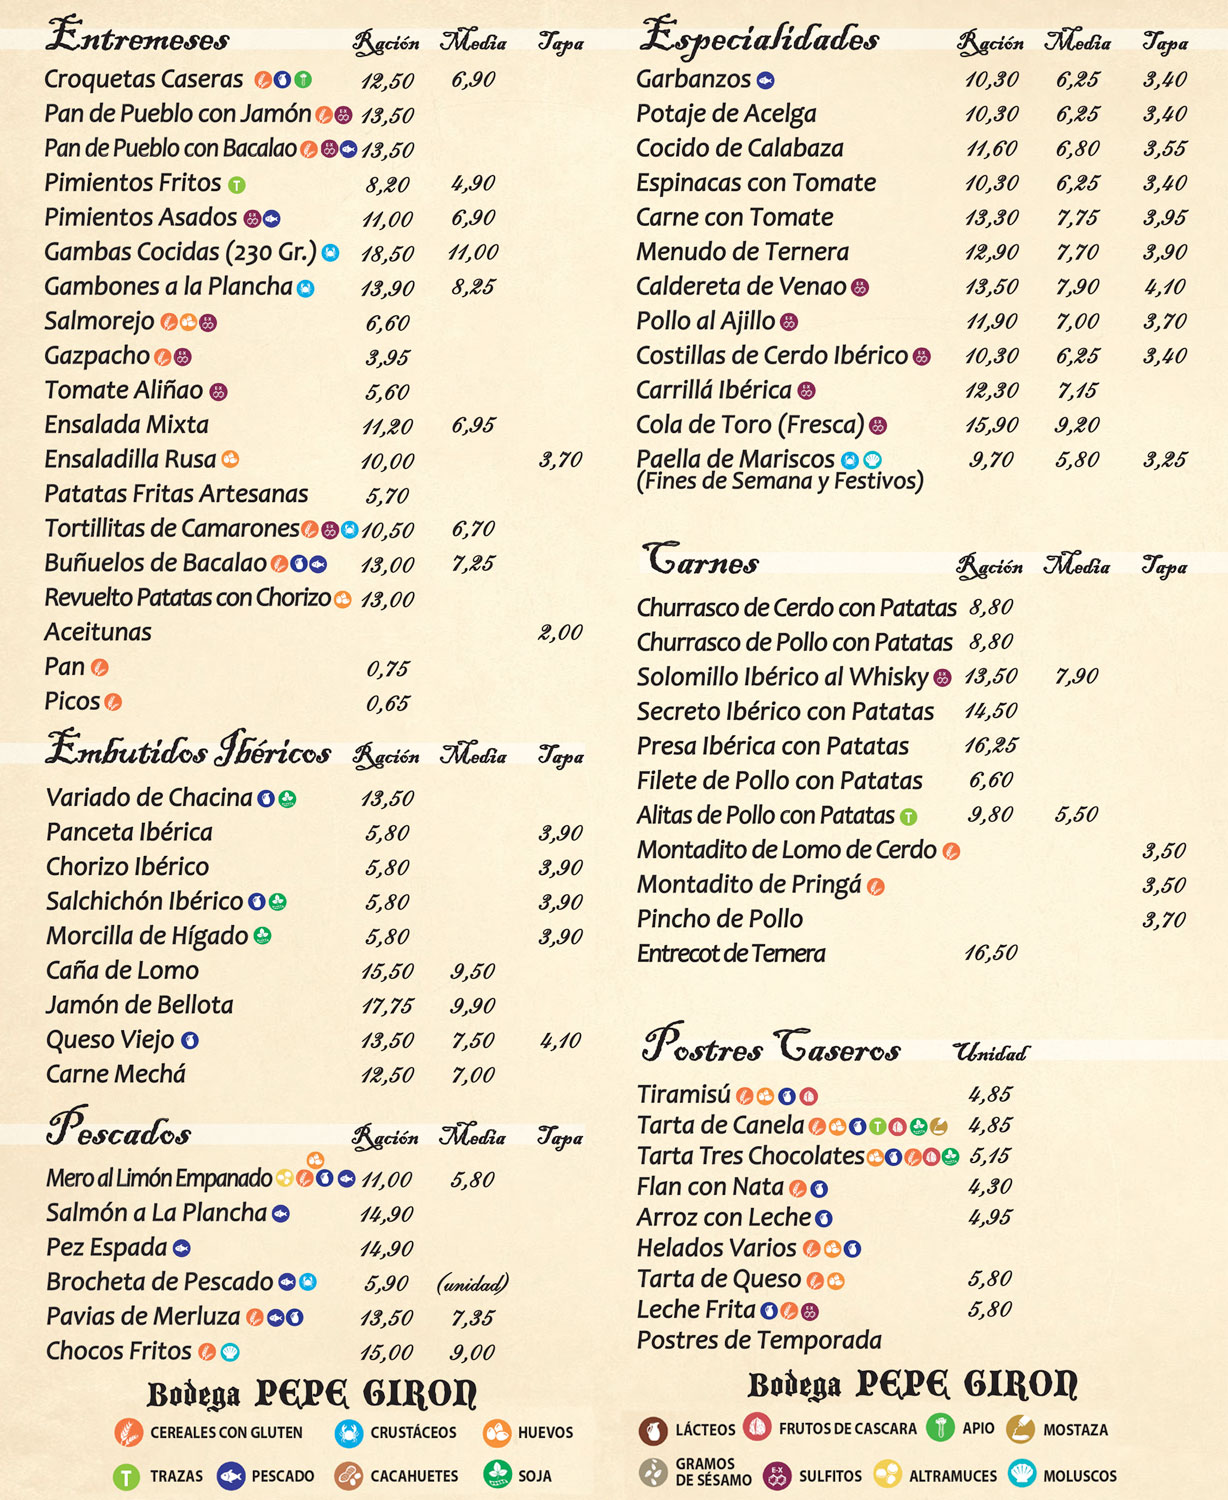 Entremeses Ración Media Tapa
Croquetas Caseras 12,50 6,90
Pan de Pueblo con Jamón 13,50
Pan de Pueblo con Bacalao 13,50
Pimientos Fritos T 8,20 4,90
Pimientos Asados 11,00 6,90
Gambas Cocidas (230 Gr.) 18,50 11,00
Gambones a la Plancha 13,90 8,25
Salmorejo 6,60
Gazpacho 3,95
Tomate Aliñao 5,60
Ensalada Mixta 11,20 6,95
Ensaladilla Rusa 10,00 3,70
Patatas Fritas Artesanas 5,70
Tortillitas de Camarones 10,50 6,70
Buñuelos de Bacalao 13,00 7,25
Revuelto Patatas con Chorizo 13,00
Aceitunas 2,00
Pan 0,75
Picos 0,65
Embutidos Ibéricos Ración Media Tapa
Variado de Chacina 13,50
Panceta Ibérica 5,80 3,90
Chorizo Ibérico 5,80 3,90
Salchichón Ibérico 5,80 3,90
Morcilla de Hígado 5,80 3,90
Caña de Lomo 15,50 9,50
Jamón de Bellota 17,75 9,90
Queso Viejo 13,50 7,50 4,10
Carne Mechá 12,50 7,00
Pescados Ración Media Tapa
Mero al Limón Empanado 11,00 5,80
Salmón a La Plancha 14,90
Pez Espada 14,90
Brocheta de Pescado 5,90 (unidad)
Pavias de Merluza 13,50 7,35
Chocos Fritos 15,00 9,00
Bodega PEPE GIRON
CEREALES CON GLUTEN CRUSTÁCEOS HUEVOS
T TRAZAS PESCADO CACAHUETES SOJA
Especialidades Ración Media Tapa
Garbanzos 10,30 6,25 3,40
Potaje de Acelga 10,30 6,25 3,40
Cocido de Calabaza 11,60 6,80 3,55
Espinacas con Tomate 10,30 6,25 3,40
Carne con Tomate 13,30 7,75 3,95
Menudo de Ternera 12,90 7,70 3,90
Caldereta de Venao 13,50 7,90 4,10
Pollo al Ajillo 11,90 7,00 3,70
Costillas de Cerdo Ibérico 10,30 6,25 3,40
Carrillá Ibérica 12,30 7,15
Cola de Toro (Fresca) 15,90 9,20
Paella de Mariscos 9,70 5,80 3,25
(Fines de Semana y Festivos)
Carnes Ración Media Tapa
Churrasco de Cerdo con Patatas 8,80
Churrasco de Pollo con Patatas 8,80
Solomillo Ibérico al Whisky 13,50 7,90
Secreto Ibérico con Patatas 14,50
Presa Ibérica con Patatas 16,25
Filete de Pollo con Patatas 6,60
Alitas de Pollo con Patatas T 9,80 5,50
Montadito de Lomo de Cerdo 3,50
Montadito de Pringá 3,50
Pincho de Pollo 3,70
Entrecot de Ternera 16,50
Postres Caseros Unidad
Tiramisú 4,85
Tarta de Canela T 4,85
Tarta Tres Chocolates 5,15
Flan con Nata 4,30
Arroz con Leche 4,95
Helados Varios
Tarta de Queso 5,80
Leche Frita 5,80
Postres de Temporada
Bodega PEPE GIRON
LÁCTEOS FRUTOS DE CASCARA APIO MOSTAZA
GRAMOS
DE SÉSAMO E-X SULFITOS ALTRAMUCES MOLUSCOS